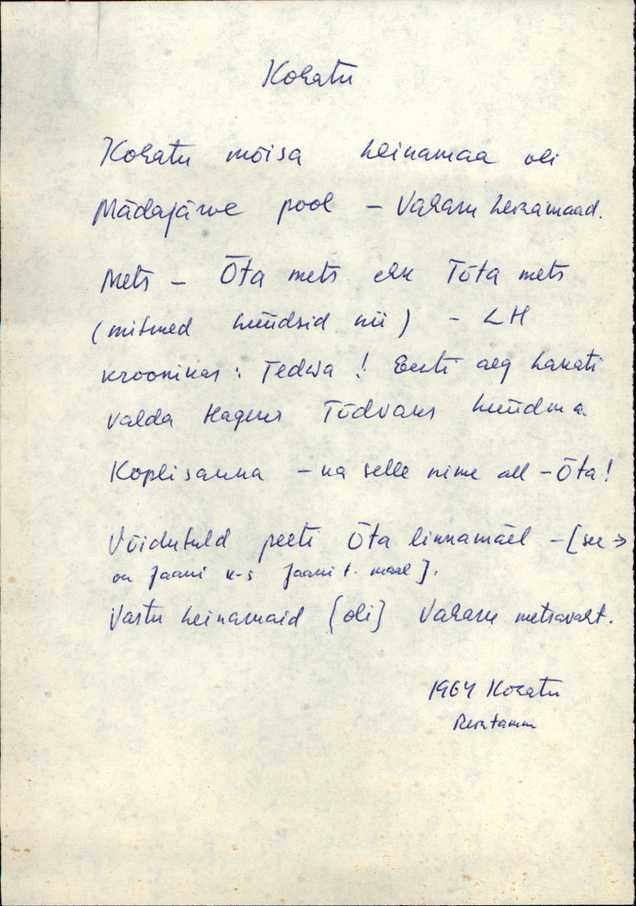 Kohatu
Kohatu mõisa heinamaa oli
Mädajärve pool – Vahasu heinamaad.
Mets – Õta mets ehk Tõta mets
(mitmed hüüdsid nii) – LH
kroonikas: Tedwa! Eesti aeg hakati
valda Hageris Tõdvaks hüüdma.
Koplisauna – ka selle nime all – Õta!
Võidutuld peeti Õta linnamäel – [see →
on Jaani k-s Jaani t. maal].
Vastu heinamaid [oli] Vahasu metsavaht.
1964 Kohatu